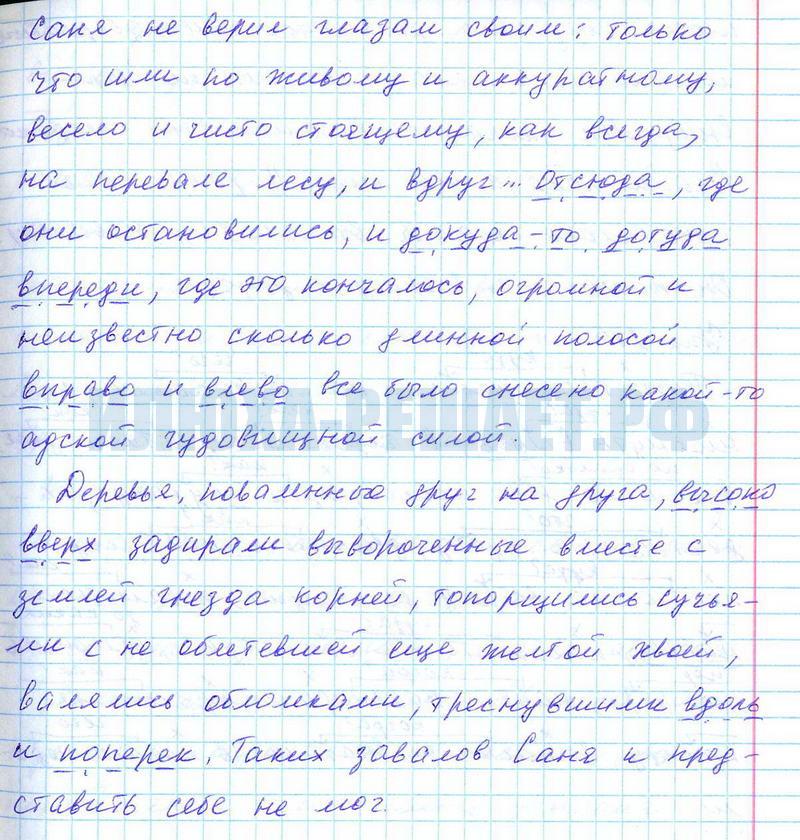 Саня не верил глазам своим: только
что шли по живому и аккуратному,
весело и чисто стоящему, как всегда,
на перевале лесу, и вдруг... Отсюда, где
они остановились, и докуда-то дотуда
впереди, где это кончалось, огромной и
неизвестно сколько длинной полосой
вправо и влево все было снесено какой-то
адской чудовищной силой.
Деревья, поваленные друг на друга, высоко
вверх задирали вывороченные вместе с
землей гнезда корней, топорщились сучья-
ми с не облетевшей еще желтой хвоей,
валялись обломками, треснувшими вдоль
и поперек. Таких завалов Саня и пред-
ставить себе не мог.
ИЛЕКА-РЕШАЕТ.РФ